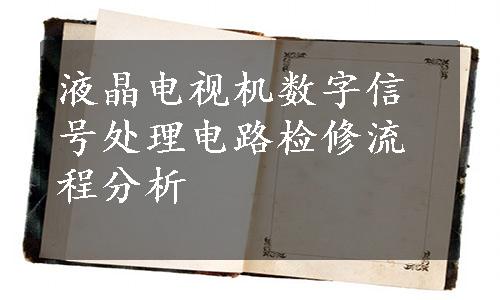 液晶电视机数字信
号处理电路检修流
程分析